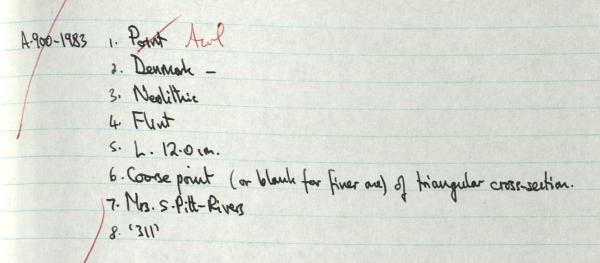 A.900-1983 1. Point Awl
2. Denmark –
3. Neolithic
4. Flint
5. L. 12.0 cm.
6. Coarse point (or blank for finer one) of triangular cross-section.
7. Mrs. S. Pitt-Rivers
8. '311'